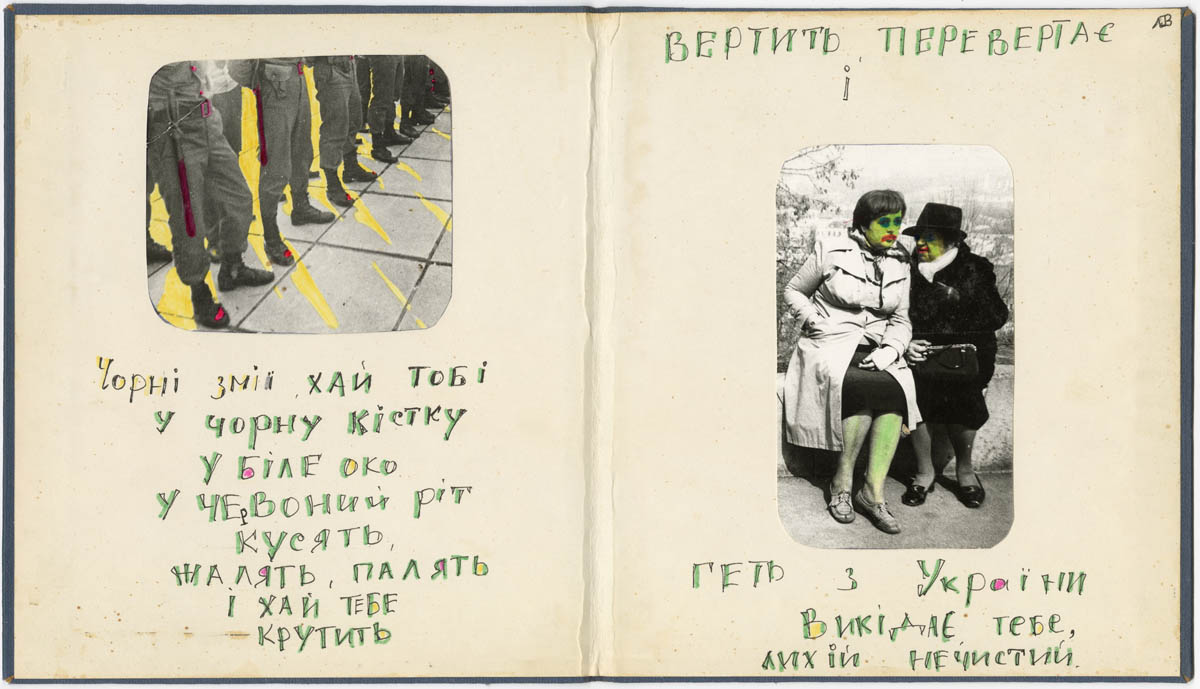 Чорні змії хай тобі
у чорну кістку
у біле око
у червоний ріт
кусять,
жалять, палять
і хай тебе
крутить
вертить перевертає
і
геть з України
викідає тебе,
лихій нечистий.